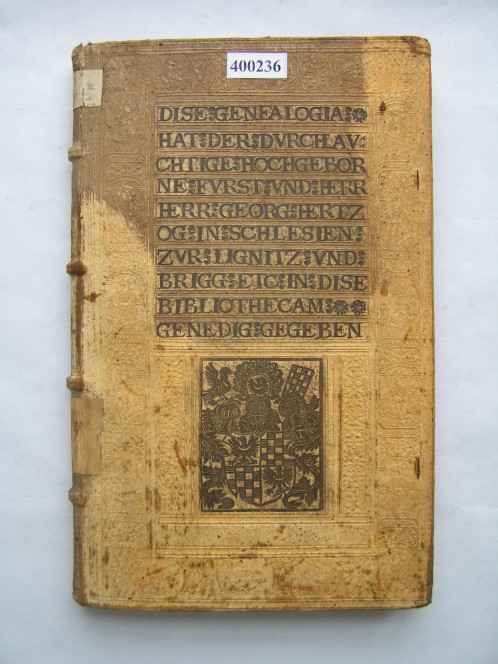 400236
DISE GENEALOGIA
HAT DER DVRCHLAV
CHTIGE HOCHGEBOR
NE FVRST VND HERR
HERR GEORG HERTZ
OG IN SCHLESIEN
ZVR LIGNITZ VND
BRIGG ETC IN DISE
BIBLIOTHECAM
GENEDIG GEGEBEN